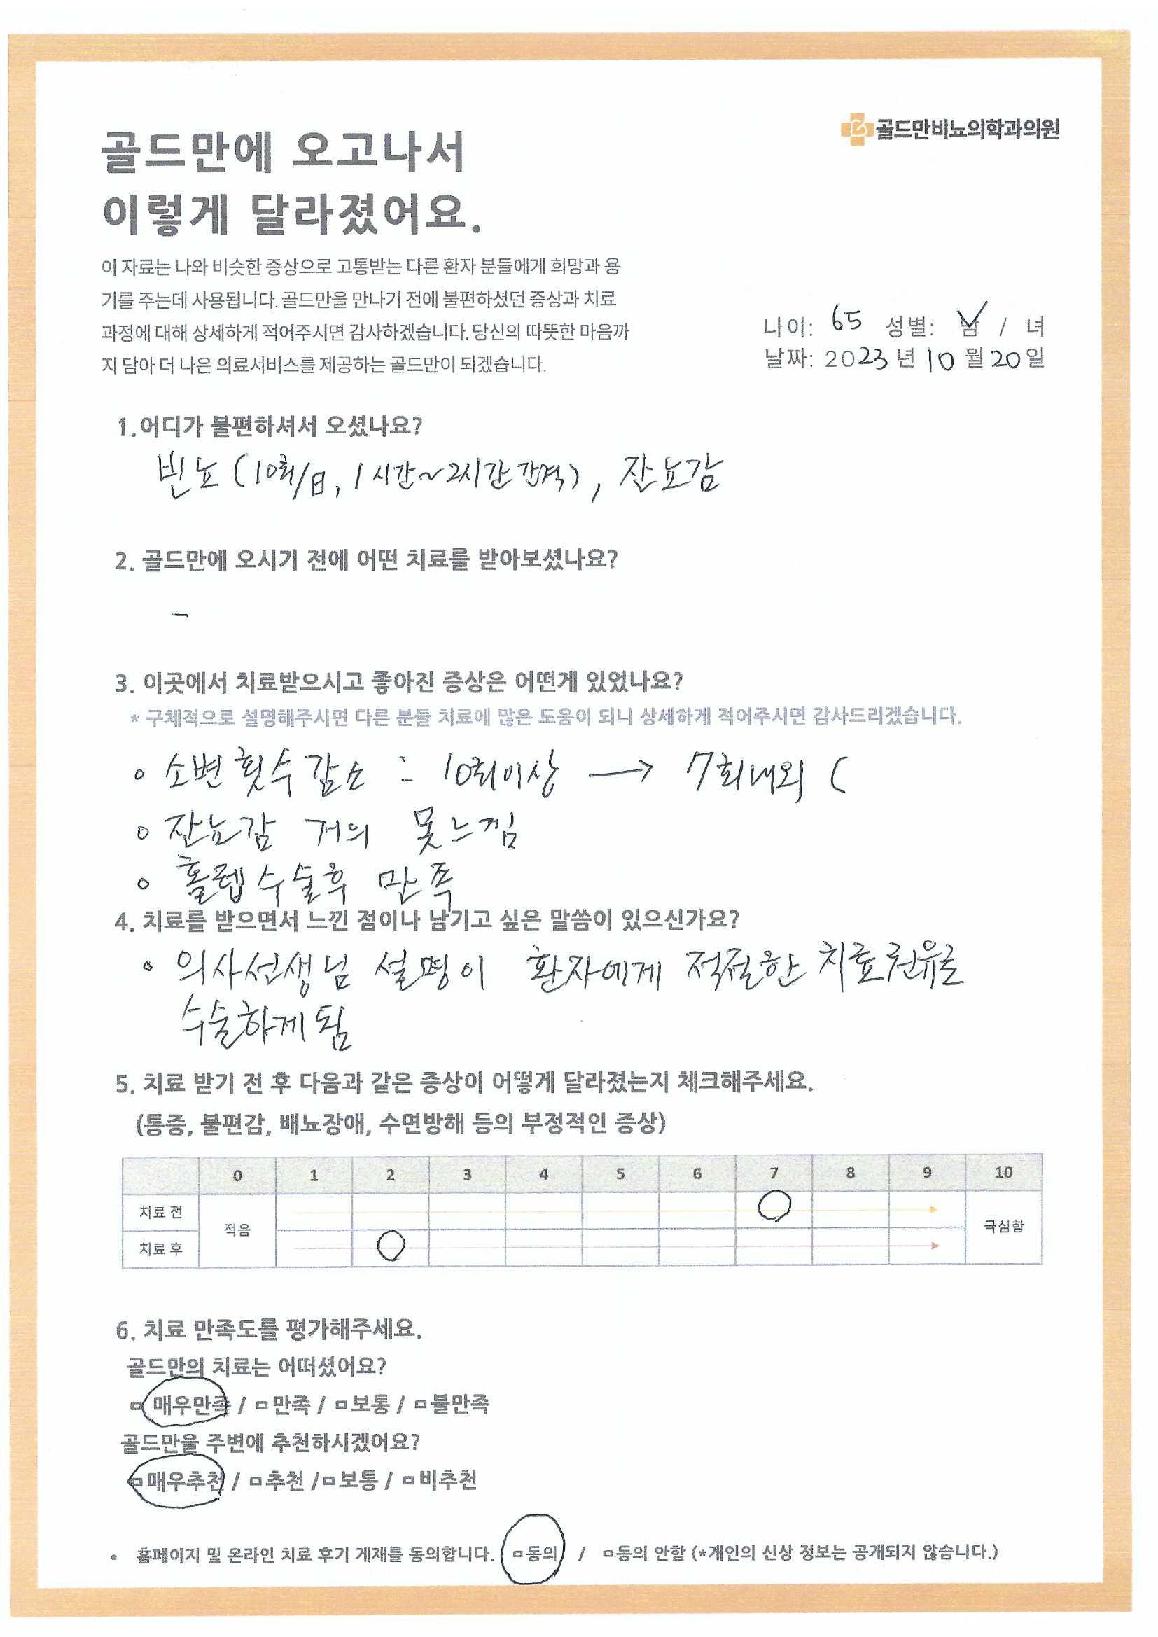 골드만비뇨의학과의원
골드만에 오고나서
이렇게 달라졌어요.
이 자료는 나와 비슷한 증상으로 고통받는 다른 환자 분들에게 희망과 용
기를 주는데 사용됩니다. 골드만을 만나기 전에 불편하셨던 증상과 치료
과정에 대해 상세하게 적어주시면 감사하겠습니다. 당신의 따뜻한 마음까
지 담아 더 나은 의료서비스를 제공하는 골드만이 되겠습니다.
나이: 65 성별: 남 / 녀
날짜: 2023년 10월 20일
1.어디가 불편하셔서 오셨나요?
빈뇨 (10회/日, 1시간~2시간 간격), 잔뇨감
2. 골드만에 오시기 전에 어떤 치료를 받아보셨나요?
-
3. 이곳에서 치료받으시고 좋아진 증상은 어떤게 있었나요?
* 구체적으로 설명해주시면 다른 분들 치료에 많은 도움이 되니 상세하게 적어주시면 감사드리겠습니다.
○ 소변 횟수 감소 : 10회이상 → 7회내외 (
○ 잔뇨감 거의 못느낌
○ 홀렙수술후 만족
4. 치료를 받으면서 느낀 점이나 남기고 싶은 말씀이 있으신가요?
○ 의사선생님 설명이 환자에게 적절한 치료권유로
수술하게됨
5. 치료 받기 전 후 다음과 같은 증상이 어떻게 달라졌는지 체크해주세요.
(통증, 불편감, 배뇨장애, 수면방해 등의 부정적인 증상)
0 1 2 3 4 5 6 7 8 9 10
치료 전
적음 극심함
치료 후
6. 치료 만족도를 평가해주세요.
골드만의 치료는 어떠셨어요?
□ 매우만족 / □ 만족 / □ 보통 / □ 불만족
골드만을 주변에 추천하시겠어요?
□ 매우추천 / □ 추천 / □ 보통 / □ 비추천
• 홈페이지 및 온라인 치료 후기 게재를 동의합니다. □ 동의 / □ 동의 안함 (*개인의 신상 정보는 공개되지 않습니다.)